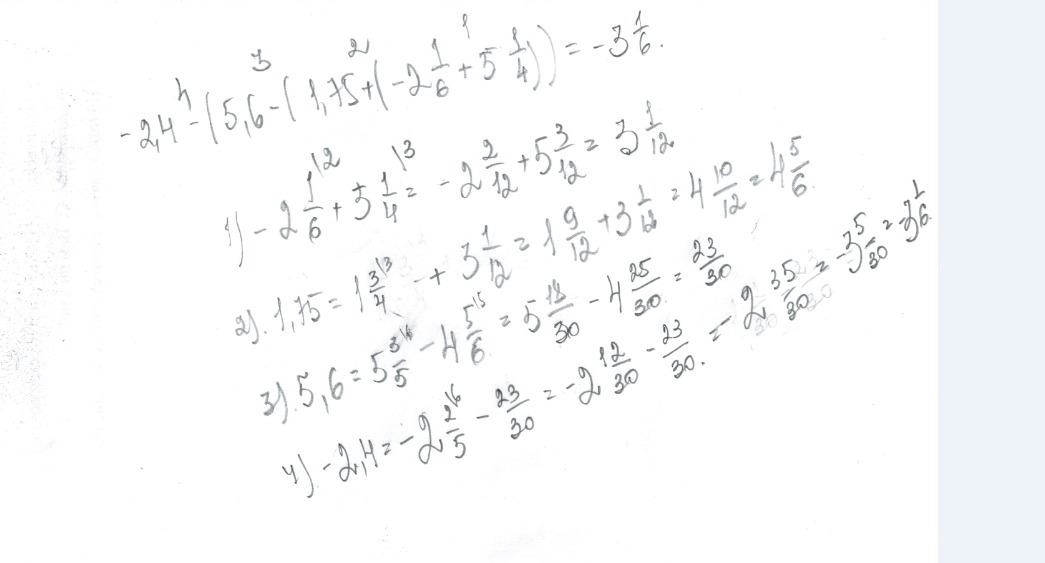 -2,4 - (5,6 - (1,75 + (-2 1/6 + 5 1/4)) = -3 1/6.
1) -2 1/6 \2 + 5 1/4 \3 = -2 2/12 + 5 3/12 = 3 1/12
2). 1,75 = 1 3/4 \3 + 3 1/12 = 1 9/12 + 3 1/12 = 4 10/12 = 4 5/6.
3). 5,6 = 5 3/5 \6 - 4 5/6 \5 = 5 18/30 - 4 25/30 = 23/30
4) -2,4 = -2 2/5 \6 - 23/30 = -2 12/30 - 23/30. = -2 35/30 = -3 5/30 = 3 1/6.